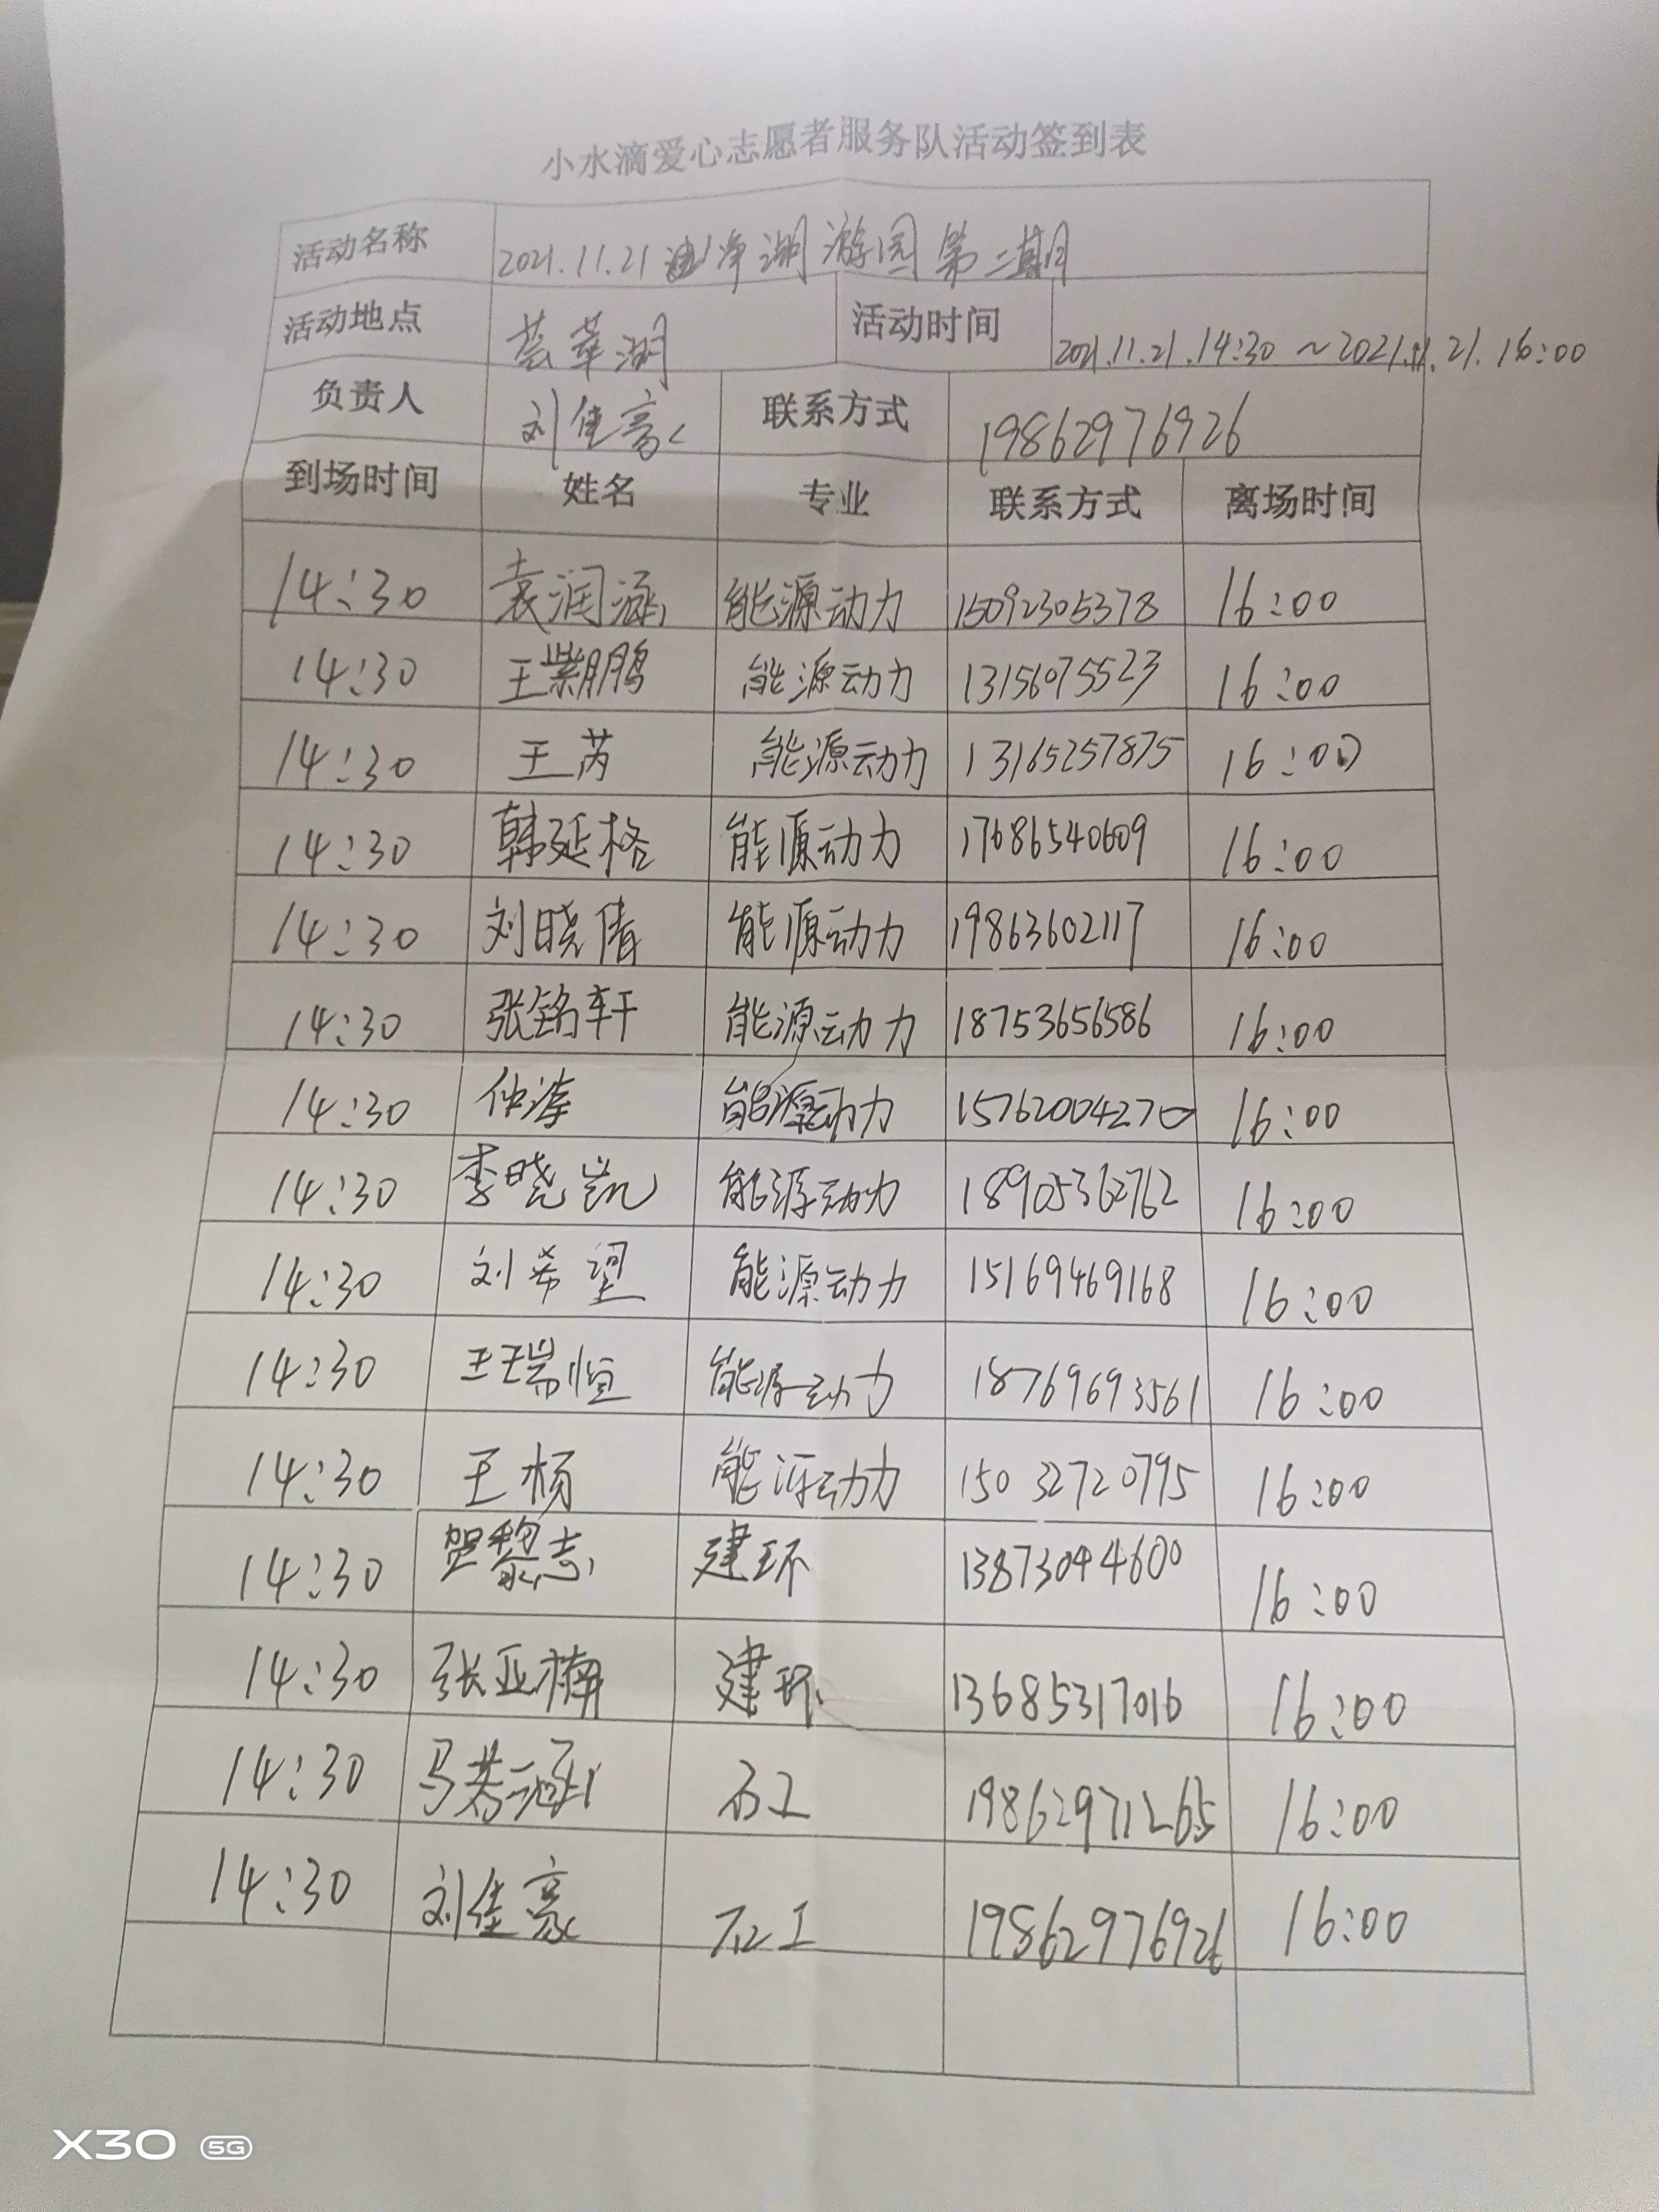 小水滴爱心志愿者服务队活动签到表
活动名称 2021.11.21 净湖游园第二期
活动地点 荟萃湖 活动时间 2021.11.21.14:30～2021.11.21.16:00
负责人 刘佳豪 联系方式 19862976926
到场时间 姓名 专业 联系方式 离场时间
14:30 袁润涵 能源动力 15092305378 16:00
14:30 王紫鹏 能源动力 13156075523 16:00
14:30 王芮 能源动力 13165257875 16:00
14:30 韩延格 能源动力 17686540609 16:00
14:30 刘晓倩 能源动力 19863602117 16:00
14:30 张铭轩 能源动力 18753656586 16:00
14:30 仲涛 能源动力 15762004270 16:00
14:30 李晓凯 能源动力 18905362762 16:00
14:30 刘希望 能源动力 15169469168 16:00
14:30 王瑞恒 能源动力 18769693561 16:00
14:30 王杨 能源动力 15032720795 16:00
14:30 贺黎志 建环 13873044600 16:00
14:30 张亚楠 建环 13685317016 16:00
14:30 马 涵 石工 19862971265 16:00
14:30 刘佳豪 石工 19862976926 16:00
X30 5G